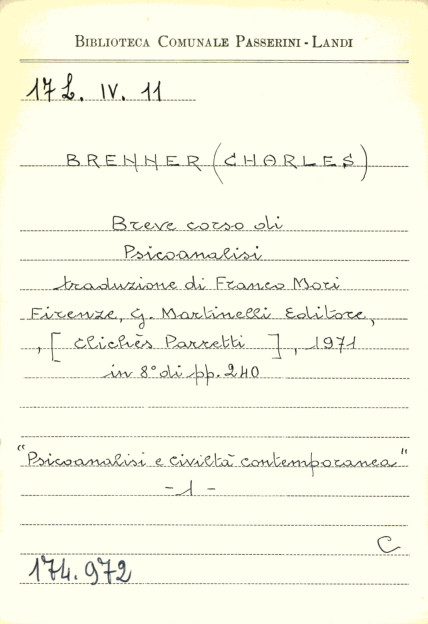 BIBLIOTECA COMUNALE PASSERINI - LANDI
17 L. IV. 11
BRENNER (CHARLES)
Breve corso di
Psicoanalisi
traduzione di Franco Mori
Firenze, G. Martinelli Editore,
, [Clichès Parretti], 1971
in 8° di pp. 240
"Psicoanalisi e civiltà contemporanea"
- 1 -
C
174.972